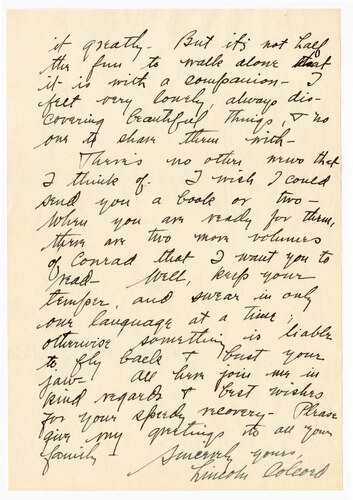 it greatly. But it's not half
the fun to walk alone that
it is with a companion - I
felt very lonely, always dis-
covering beautiful things, & no
one to share them with -
There's no other news that
I think of. I wish I could
send you a book or two -
When you are ready for them,
there are two more volumes
of Conrad that I want you to
read - Well, keep your
temper, and swear in only
one language at a time;
otherwise something is liable
to fly back & bust your
jaw - All here join me in
kind regards & best wishes
for your speedy recovery - Please
give my greetings to all your
family -
Sincerely yours,
Lincoln Colcord